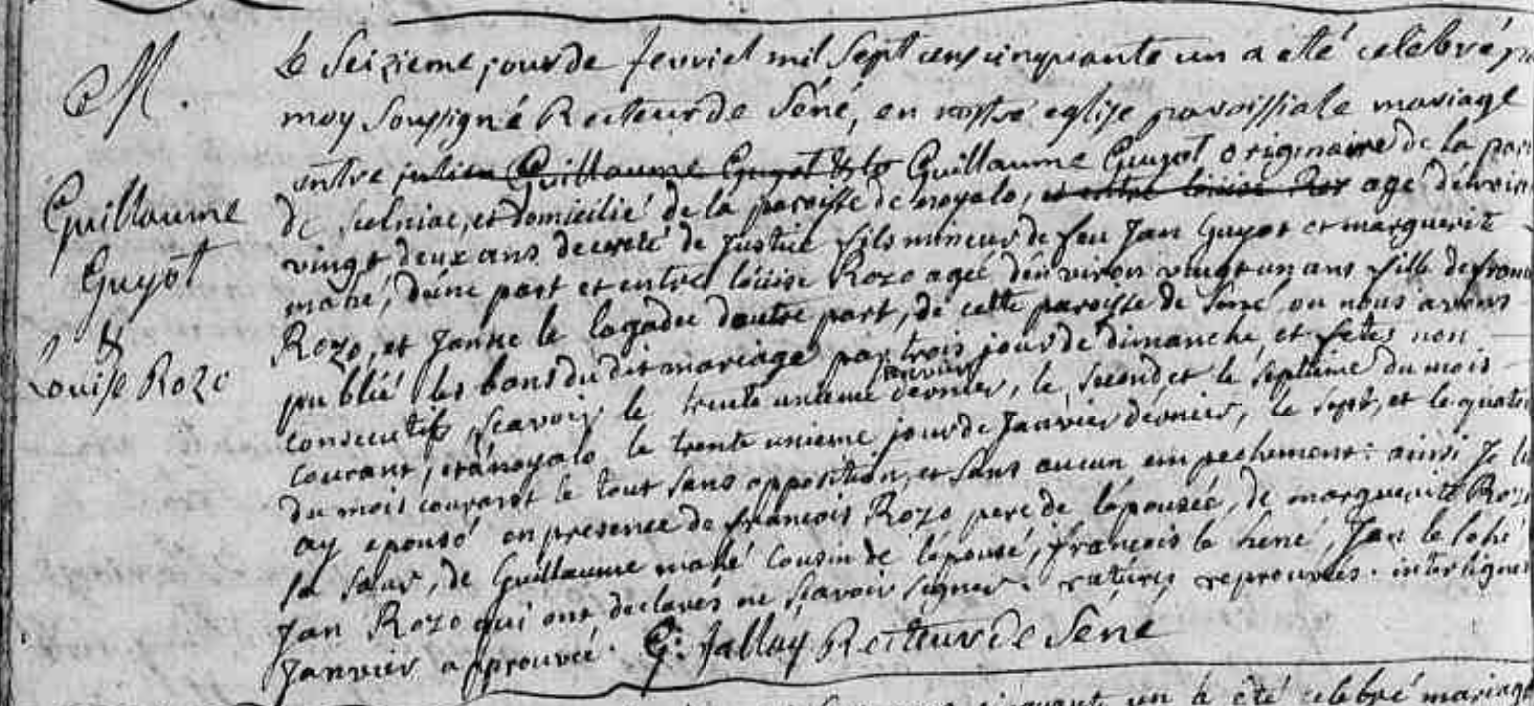 M.
Guillaume
Guyot
&
Louise Rozo
le Seizieme jour de fevrier mil Sept cens cinquante un a eté celebré
moy Soussigné Recteur de Séné, en nostre eglise paroissiale mariage
entre julien Guillaume Guyot & le Guillaume Guyot originaire de la par
de sulniac, et domicilié de la paroisse de noyalo, et entre louise Roz agé dénviron
vingt deux ans decreté de Justice fils mineur de feu Jan Guyot et marguerite
mahé, dúne part et entre loüise Rozo agée dénviron vingt un ans fille de fran
Rozo, et Janne le lagadec dautre part, de cette paroisse de Séné ou nous avons
publié les bans du dit mariage par trois jour de dimanche et fetes non
consecutifs, scavoir le trente unieme janvier dernier, le second et le septième du mois
courant, et à noyalo le trente unieme jour de Janvier dérnier, le sept, et le quato
du mois courant le tout Sans opposition, et Sans aucun empechement: ainsi Je l
ay epousé en presence de francois Rozo pere de lépousée, de marguerite Roz
sa sœur, de Guillaume mahé cousin de lépousé, francois le hené, Jan le lohé
Jan Rozo qui ont declarés ne scavoir signer. ratures reprouvées. interlignes
Janvier approuvée. G: Jallay Recteur de Séné
un a été celebré mariage